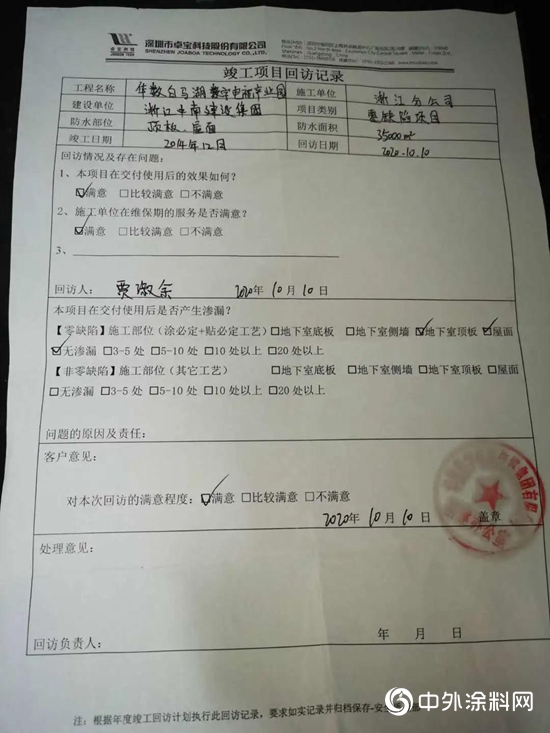 卓宝科技
深圳市卓宝科技股份有限公司
SHENZHEN JOABOA TECHNOLOGY CO.,LTD.
竣工项目回访记录
工程名称 华数白马湖数字电视产业园 施工单位 浙江分公司
建设单位 浙江中南建设集团 项目类别 零缺陷项目
防水部位 顶板、屋面 防水面积 35000㎡
竣工日期 2014年12月 回访日期 2020.10.10
回访情况及存在问题：
1、本项目在交付使用后的效果如何？
☑满意 □比较满意 □不满意
2、施工单位在维保期的服务是否满意？
☑满意 □比较满意 □不满意
3、
回访人： 2020年10月10日
本项目在交付使用后是否产生渗漏？
【零缺陷】施工部位（涂必定+贴必定工艺）□地下室底板 □地下室侧墙 ☑地下室顶板 ☑屋面
☑无渗漏 □3-5处 □5-10处 □10处以上 □20处以上
【非零缺陷】施工部位（其它工艺） □地下室底板 □地下室侧墙 □地下室顶板 □屋面
□无渗漏 □3-5处 □5-10处 □10处以上 □20处以上
问题的原因及责任：
客户意见：
对本次回访的满意程度：☑满意 □比较满意 □不满意
2020年10月10日 盖章
处理意见：
回访负责人： 年 月 日
注：根据年度竣工回访计划执行此回访记录，要求如实记录并归档保存-安
中外涂料网